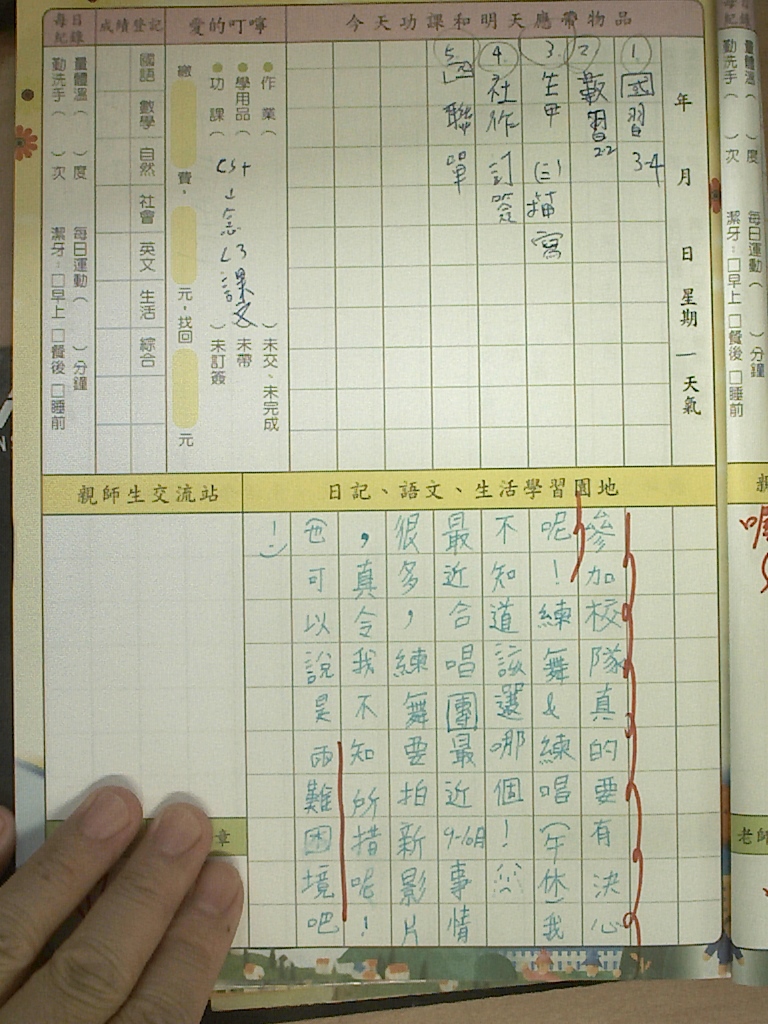 今天功課和明天應帶物品
年 月 日 星期一 天氣
1. 國習 3-4
2. 數習 22
3. 生甲 (三) 描寫
4. 社作 訂簽
5. 聯單
愛的叮嚀
作業( )未交、未完成
學用品( )未帶
功課( )未訂簽
念L3課文
繳 費, 元,找回 元
成績登記
國語 數學 自然 社會 英文 生活 綜合
每日紀錄
量體溫( )度 每日運動( )分鐘
勤洗手( )次 潔牙:□早上 □餐後 □睡前
日記、語文、生活學習園地
參加校隊真的要有決心
呢!練舞&練唱(午休)我
不知道該選哪個!
最近合唱團最近9-10月事情
很多,練舞要拍新影片
,真令我不知所措呢!
也可以說是兩難困境吧
!
親師生交流站
章
量體溫( )度 每日運動( )分鐘
勤洗手( )次 潔牙:□早上 □餐後 □睡前
老師